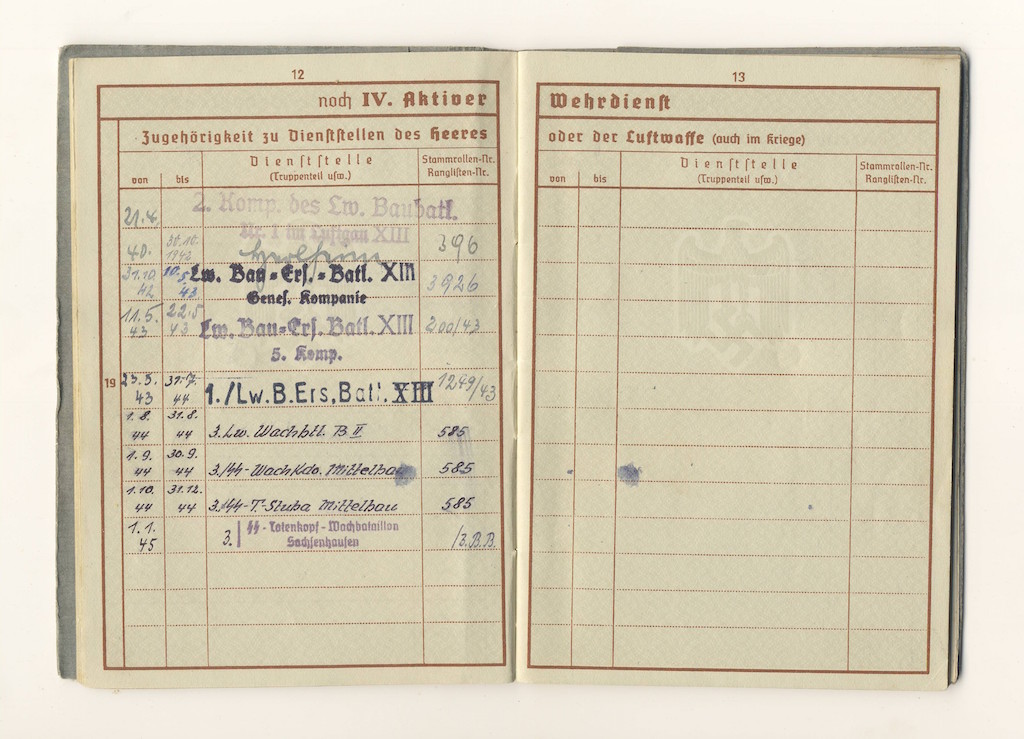 12
noch IV. Aktiver
Zugehörigkeit zu Dienststellen des Heeres
von
bis
Dienststelle
(Truppenteil usw.)
Stammrollen-Nr.
Ranglisten-Nr.
21.4.
40.
30.10.
1942
2. Komp. des Lw. Baubatl.
Nr. 1 im Luftgau XIII
396
31.10
42
10.5
43
Lw. Bau-Ers.-Batl. XIII
Genes. Kompanie
3926
11.5.
43
22.5
43
Lw. Bau-Ers. Batl. XIII
5. Komp.
200/43
19
23.5.
43
31.7.
44
1./Lw.B.Ers,Batl. XIII
1249/43
1.8.
44
31.8.
44
3. Lw. Wachbtl. B II
585
1.9.
44
30.9.
44
3./SS-Wach Kdo. Mittelbau
585
1.10.
44
31.12.
44
3./SS-T-Stuba Mittelbau
585
1.1.
45
3.
SS-Totenkopf-Wachbataillon
Sachsenhausen
/3.B.B.
13
Wehrdienst
oder der Luftwaffe (auch im Kriege)
von
bis
Dienststelle
(Truppenteil usw.)
Stammrollen-Nr.
Ranglisten-Nr.